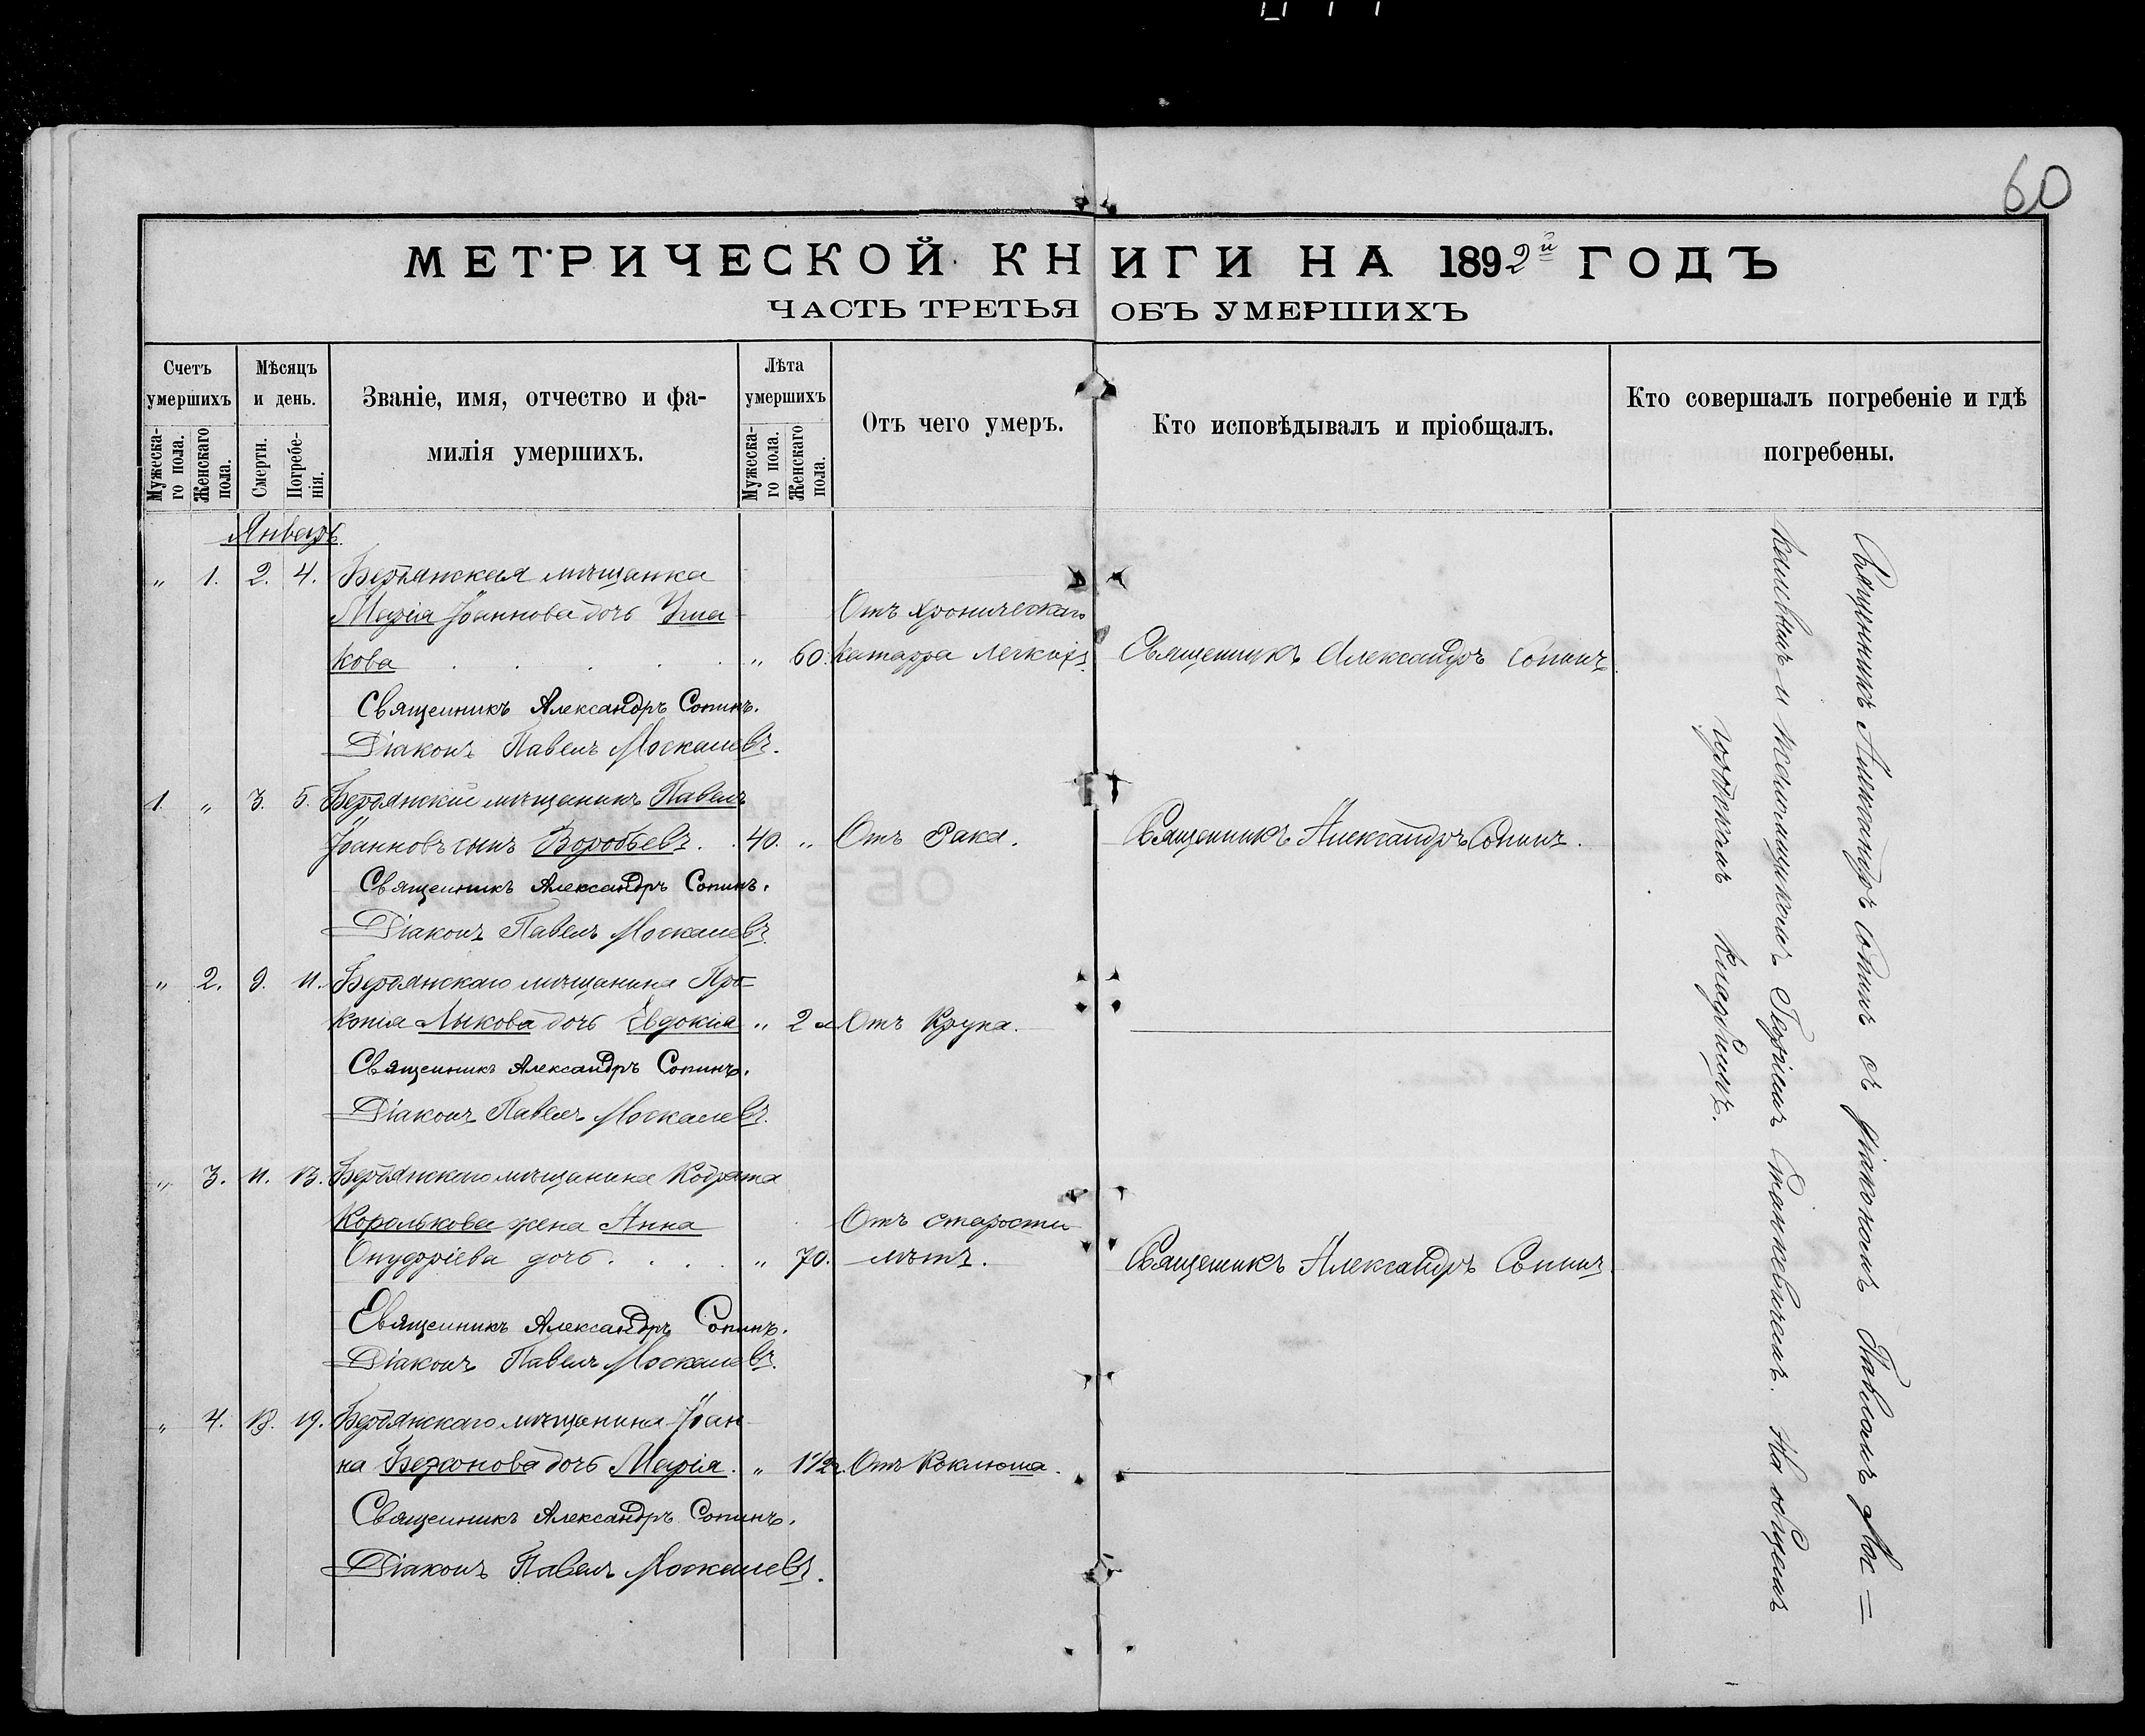 60
МЕТРИЧЕСКОЙ КНИГИ НА 1892й ГОДЪ
ЧАСТЬ ТРЕТЬЯ ОБЪ УМЕРШИХЪ
Счетъ умершихъ
Мужескаго пола.
Женскаго пола.
Мѣсяцъ и день.
Смерти.
Погребенія.
Званіе, имя, отчество и фамилія умершихъ.
Лѣта умершихъ
Мужескаго пола.
Женскаго пола.
Отъ чего умеръ.
Кто исповѣдывалъ и пріобщалъ.
Кто совершалъ погребеніе и гдѣ погребены.
Январь.
„ 1. 2. 4. Бердянская мѣщанка
Марія Іоаннова дочь Уша- Отъ хроническаго
кова „ 60. катарра легкихъ. Священникъ Александръ Сопинъ.
Священникъ Александръ Сопинъ.
Діаконъ Павелъ Москалевъ.
1. „ 3. 5. Бердянскій мѣщанинъ Павелъ
Іоанновъ сынъ Воробьевъ. 40. „ Отъ Рака. Священникъ Александръ Сопинъ.
Священникъ Александръ Сопинъ.
Діаконъ Павелъ Москалевъ.
„ 2. 9. 11. Бердянскаго мѣщанина Про-
копія Лыкова дочь Евдокія „ 2 м Отъ Крупа.
Священникъ Александръ Сопинъ.
Діаконъ Павелъ Москалевъ.
„ 3. 11. 13. Бердянскаго мѣщанина Кодрата
Королькова жена Анна Отъ старости
Онуфріева дочь. „ 70. лѣтъ. Священникъ Александръ Сопинъ.
Священникъ Александръ Сопинъ.
Діаконъ Павелъ Москалевъ.
„ 4. 19. Бердянскаго мѣщанина Іоан-
на дочь Марія. „ 1 1/2 г. Отъ Коклюша.
Священникъ Александръ Сопинъ.
Діаконъ Павелъ Москалевъ.
Священникъ Александръ Сопинъ съ діакономъ Павломъ Мос=
калевымъ и псаломщикомъ На общемъ
городскомъ кладбищѣ.